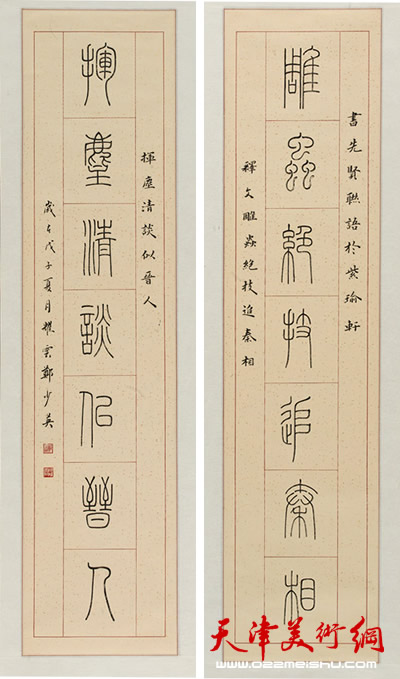 書先賢聯語於紫瑜軒
雕蟲絕技追秦相
釋文雕蟲絕技追秦相
揮麈清談似晉人
揮麈清談似晉人
歲在戊子夏月雲鄭少英
天津美術網
www.022meishu.com